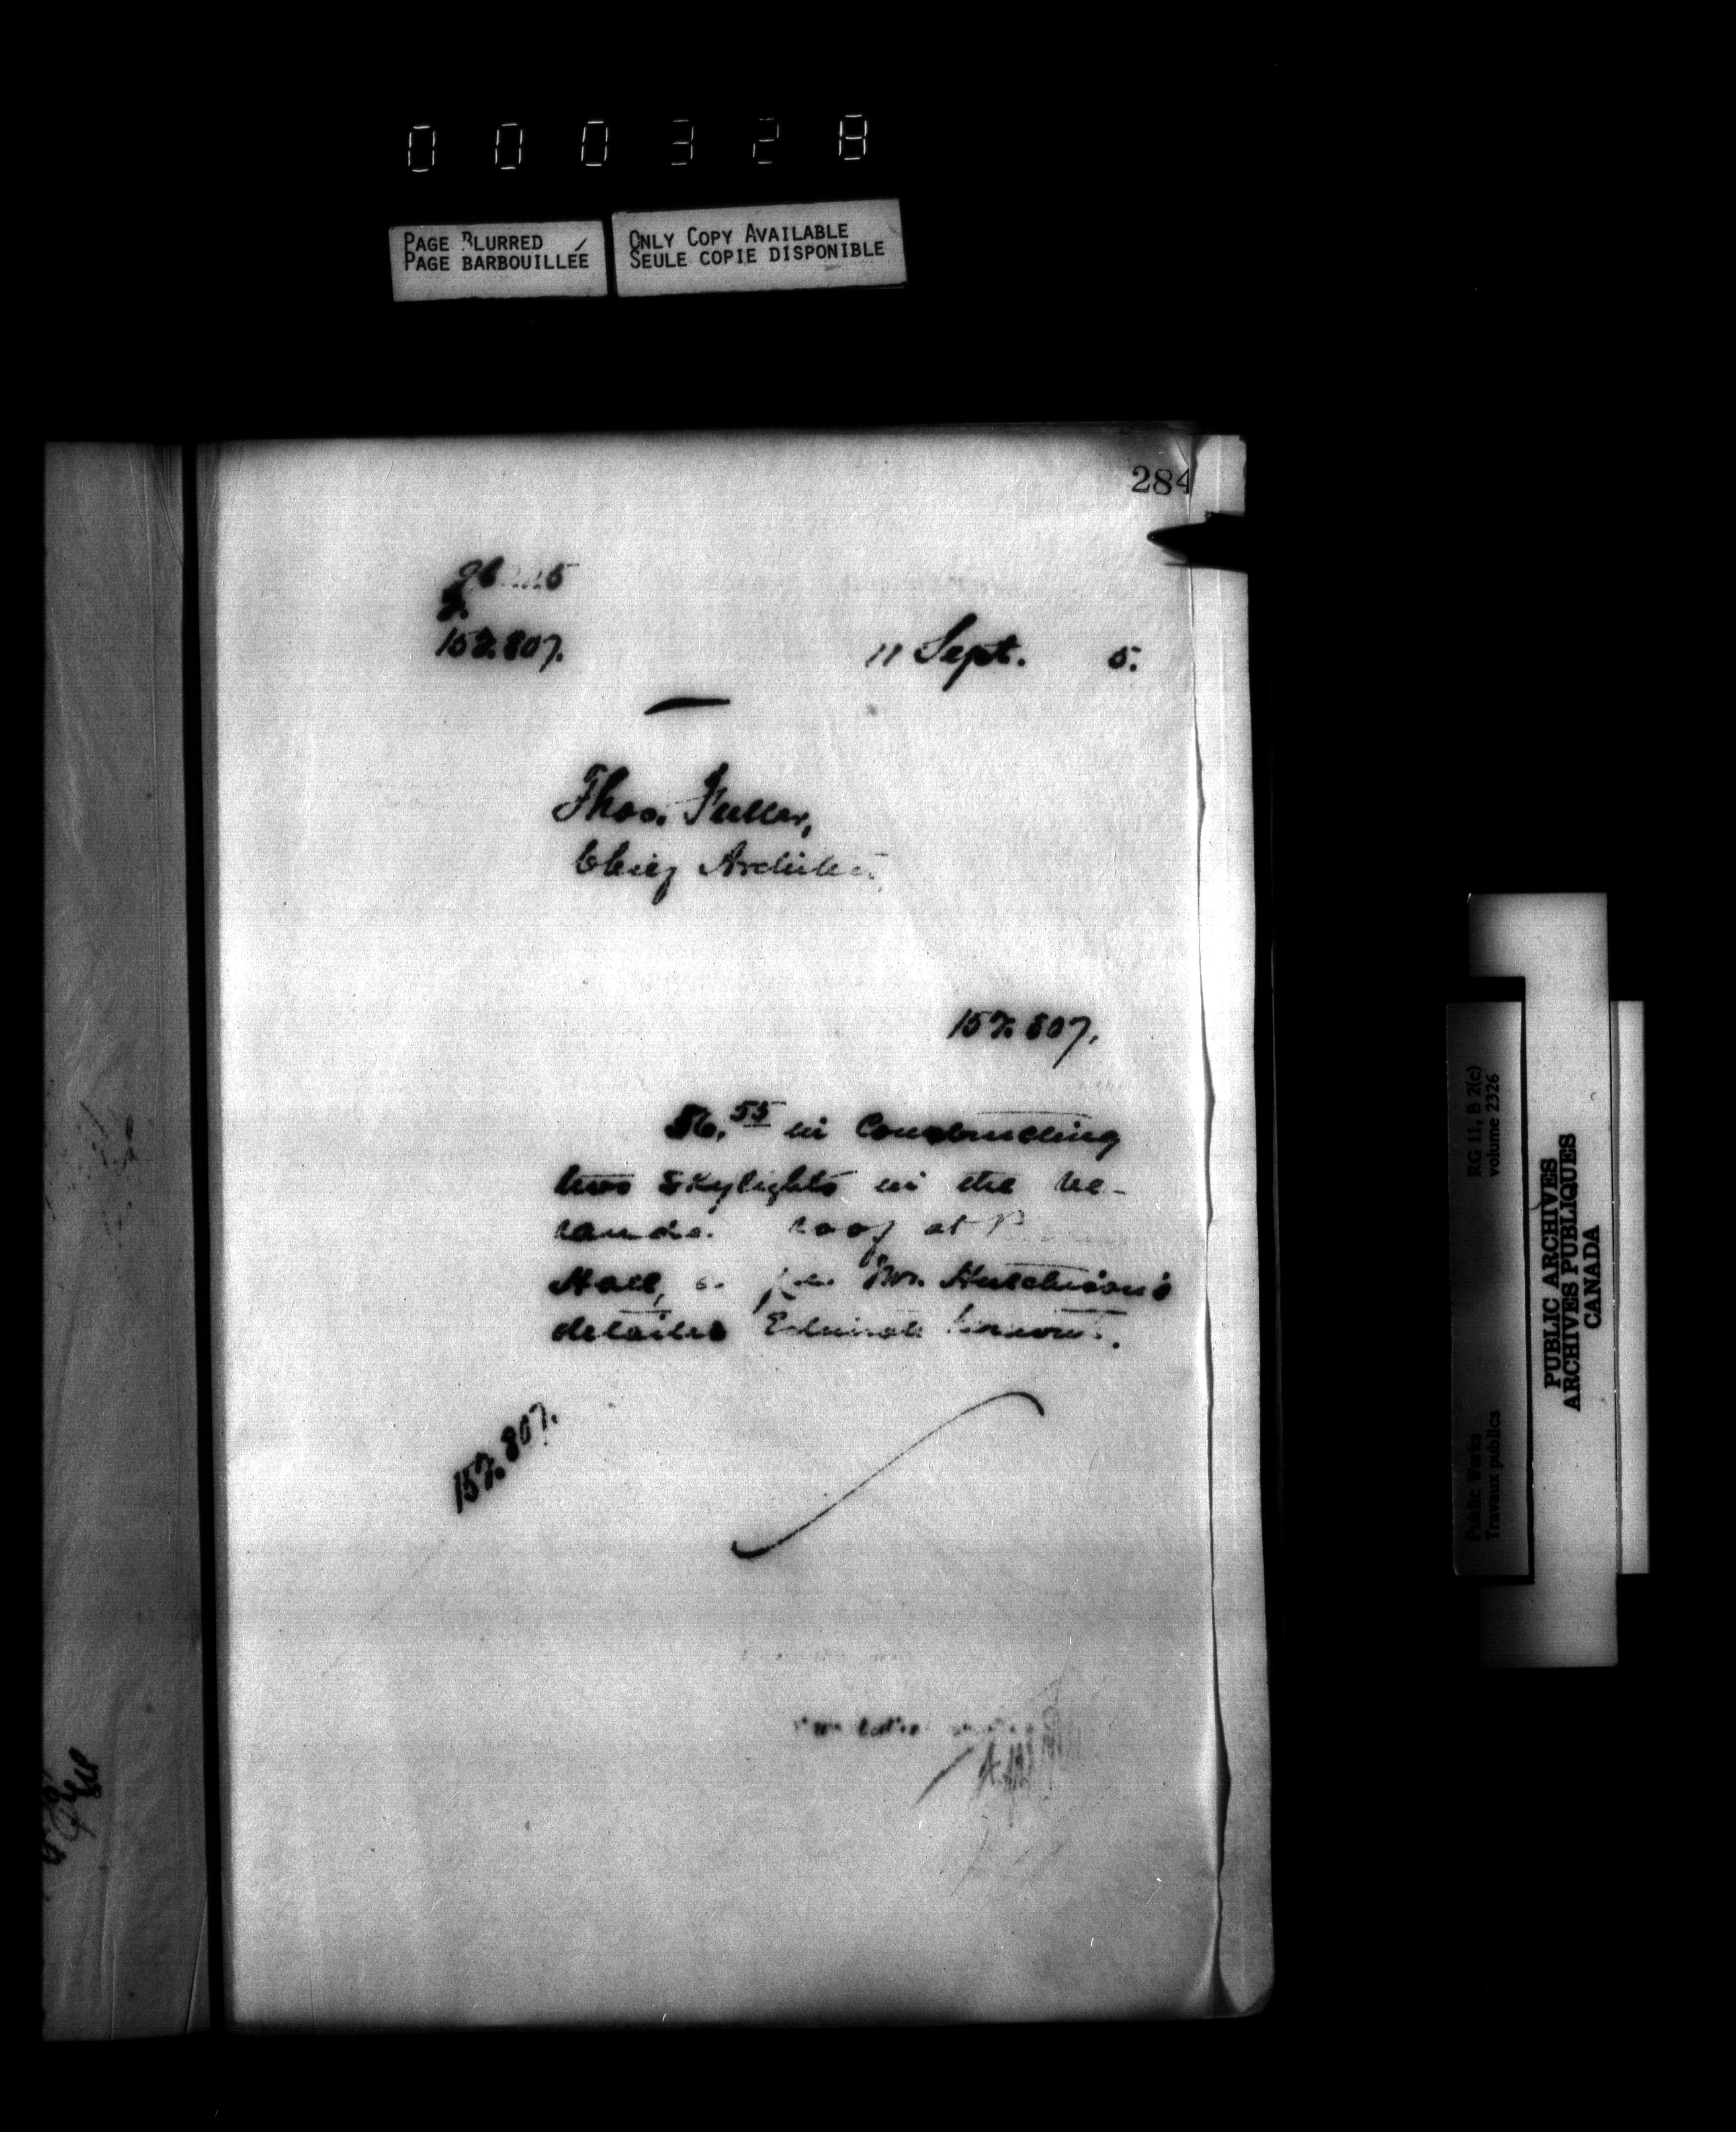 000328
PAGE BLURRED
PAGE BARBOUILLÉE
ONLY COPY AVAILABLE
SEULE COPIE DISPONIBLE
284
157.807.
11 Sept. 5.
Thos. Fuller,
Chief Architect
157.807.
56.55 in Constructing
two Skylights in the ve-
randa roof at
Hall, as per Mr. Hutchison's
detailed Estimate
157.807.
RG 11, B 2(c)
volume 2326
Public Works
Travaux publics
PUBLIC ARCHIVES
ARCHIVES PUBLIQUES
CANADA